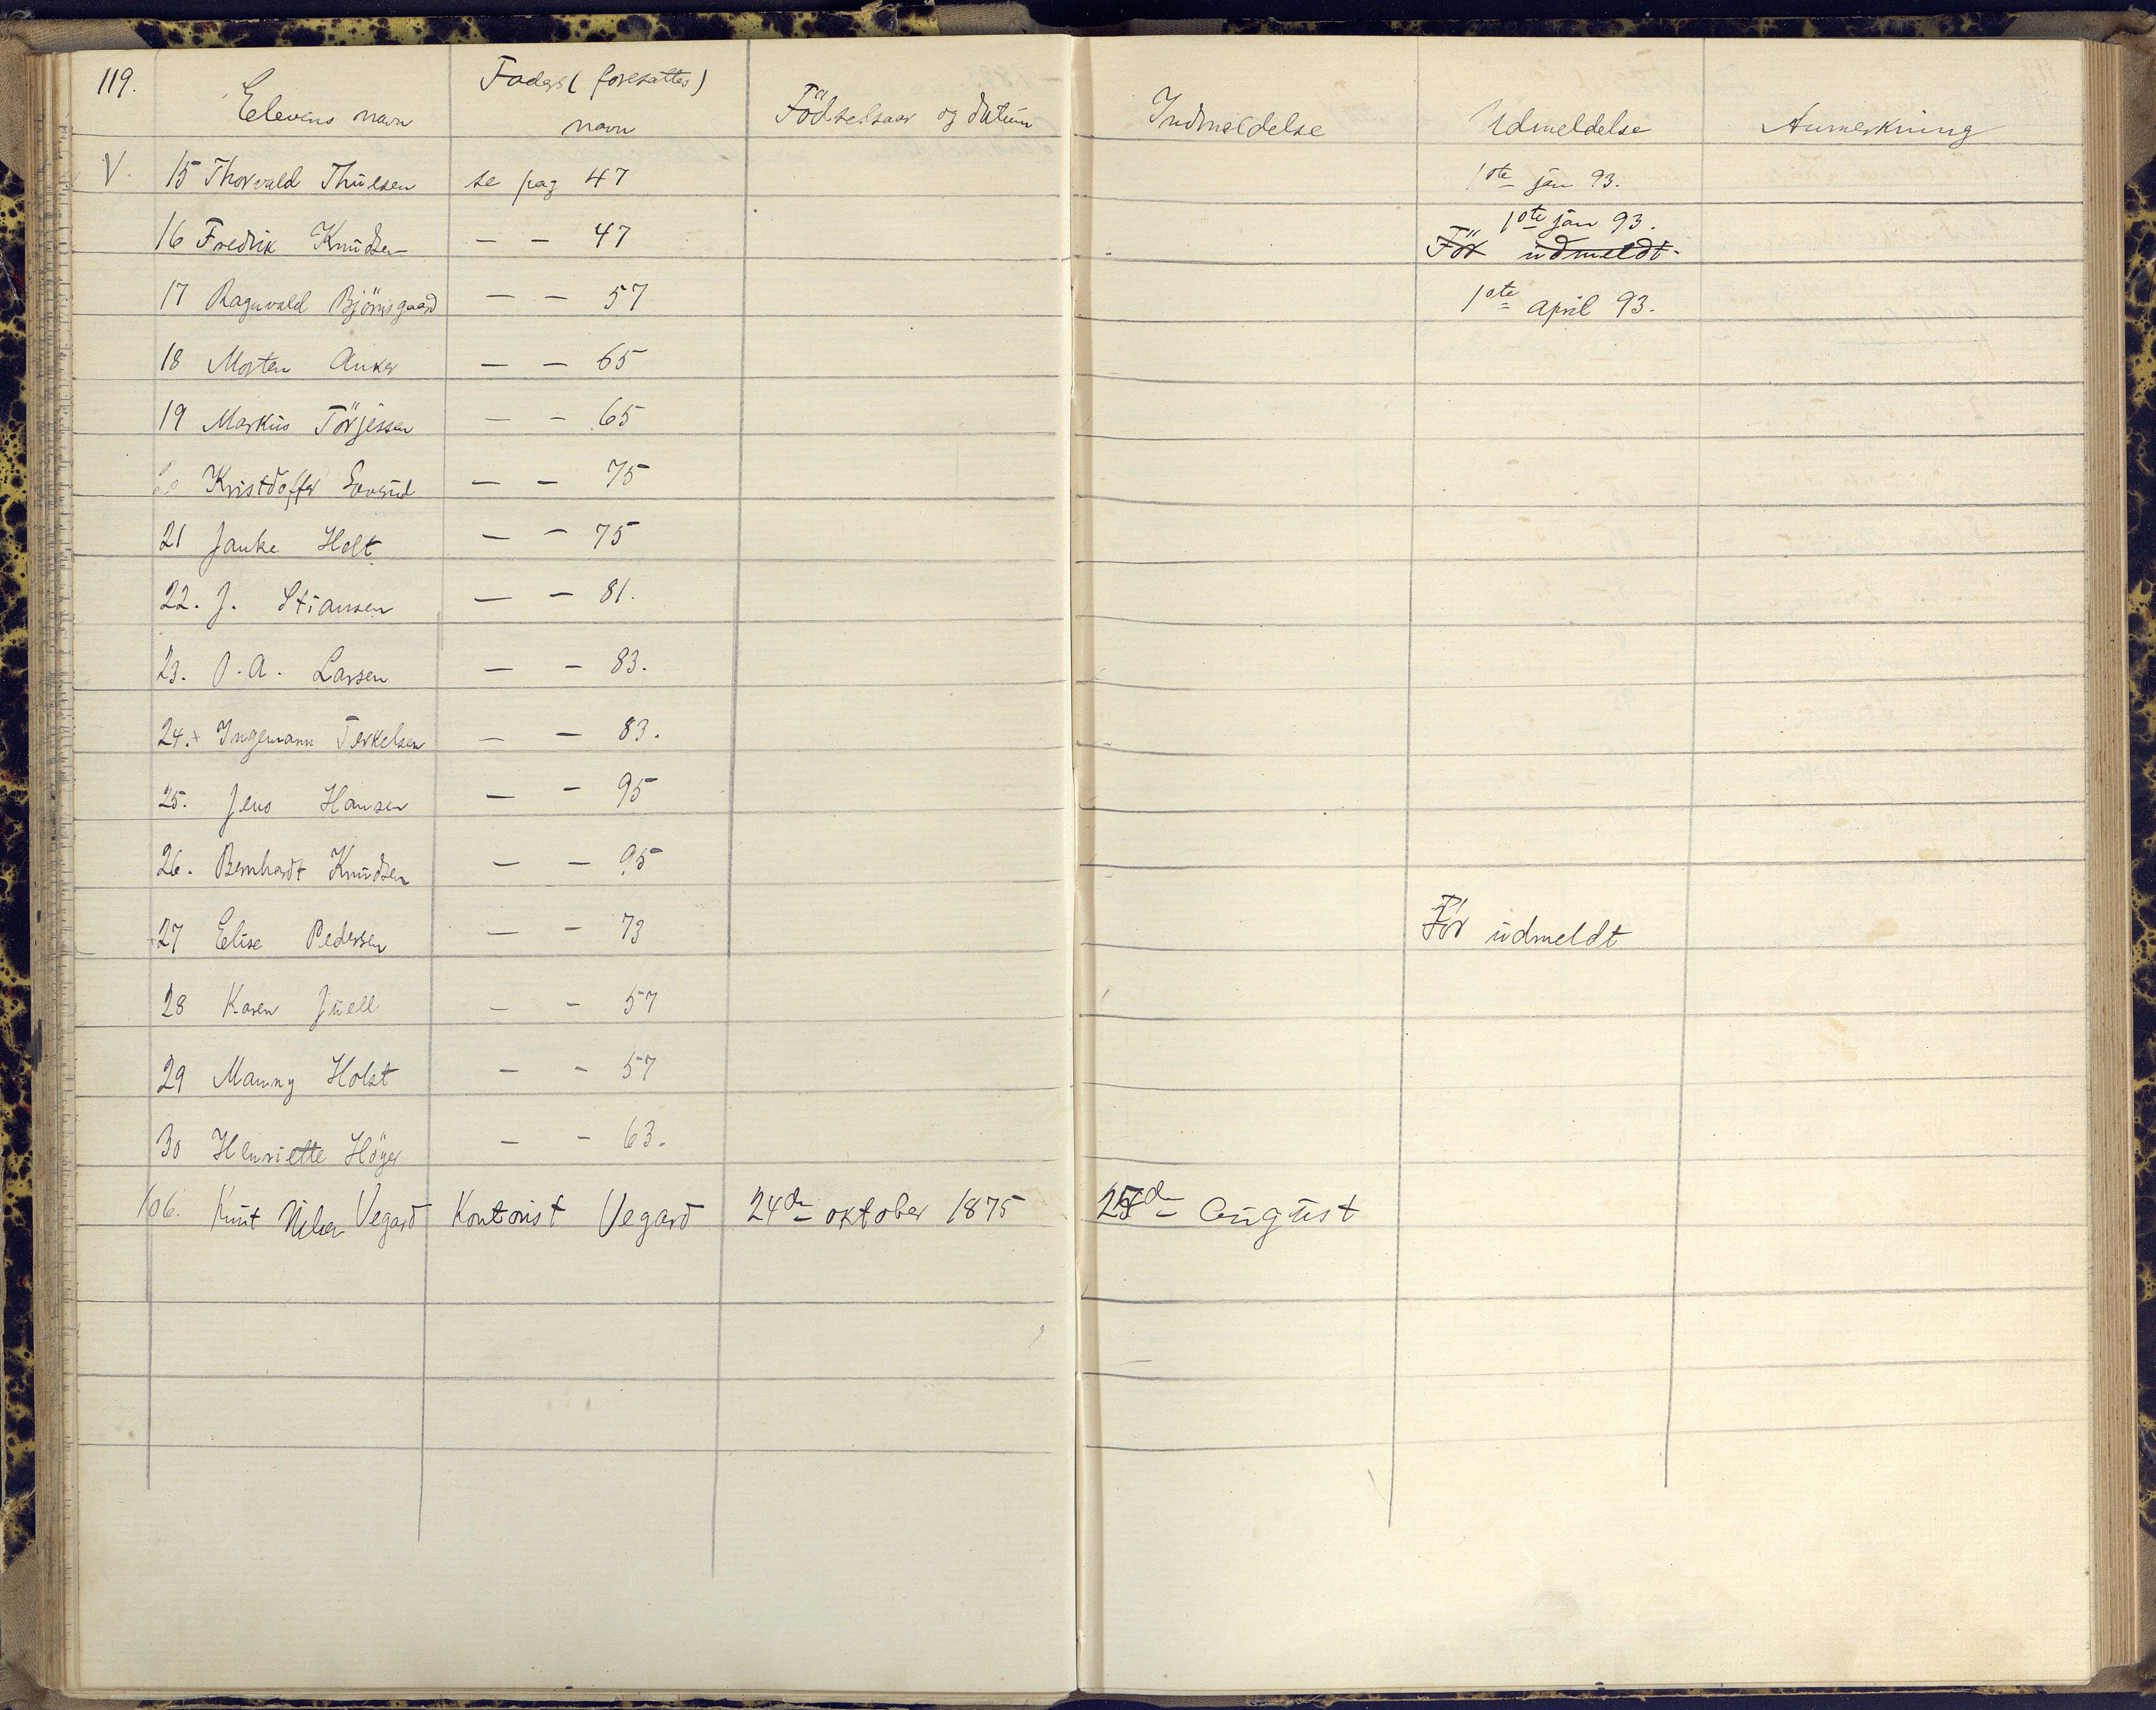 119.
Elevens navn Faders (foresattes) navn Födselsaar og datum Indmeldelse Udmeldelse Anmerkning
V. 15 Thorvald Thulsen se pag 47 1ste jan 93.
16 Fredrik Knudsen — — 47 1ste jan 93.
För udmeldt.
17 Ragnvald Björnsgaard — — 57 1ste april 93.
18 Morten Anker — — 65
19 Markus Törjessen — — 65
20 Kristoffer — — 75
21 Janke Holt — — 75
22. J. Stiansen — — 81.
23. O. A. Larsen — — 83.
24. + Ingemann Terkelsen — — 83.
25. Jens Hansen — — 95
26. Bernhardt Knudsen — — 95
27 Elise Pedersen — — 73 För udmeldt
28 Karen Juell — — 57
29 Manny Holst — — 57
30 Henriette Höyer — — 63.
106. Knut Vegard Kontorist Vegard 24de oktober 1875 25de august